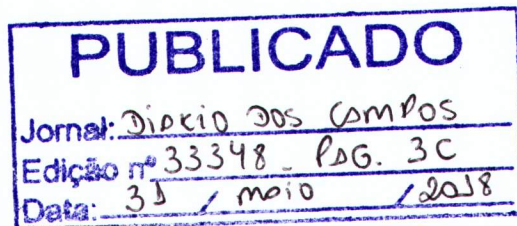 PUBLICADO
Jornal: DIÁRIO DOS CAMPOS
Edição nº 33348 - PÁG. 3C
Data: 31 / maio / 2018